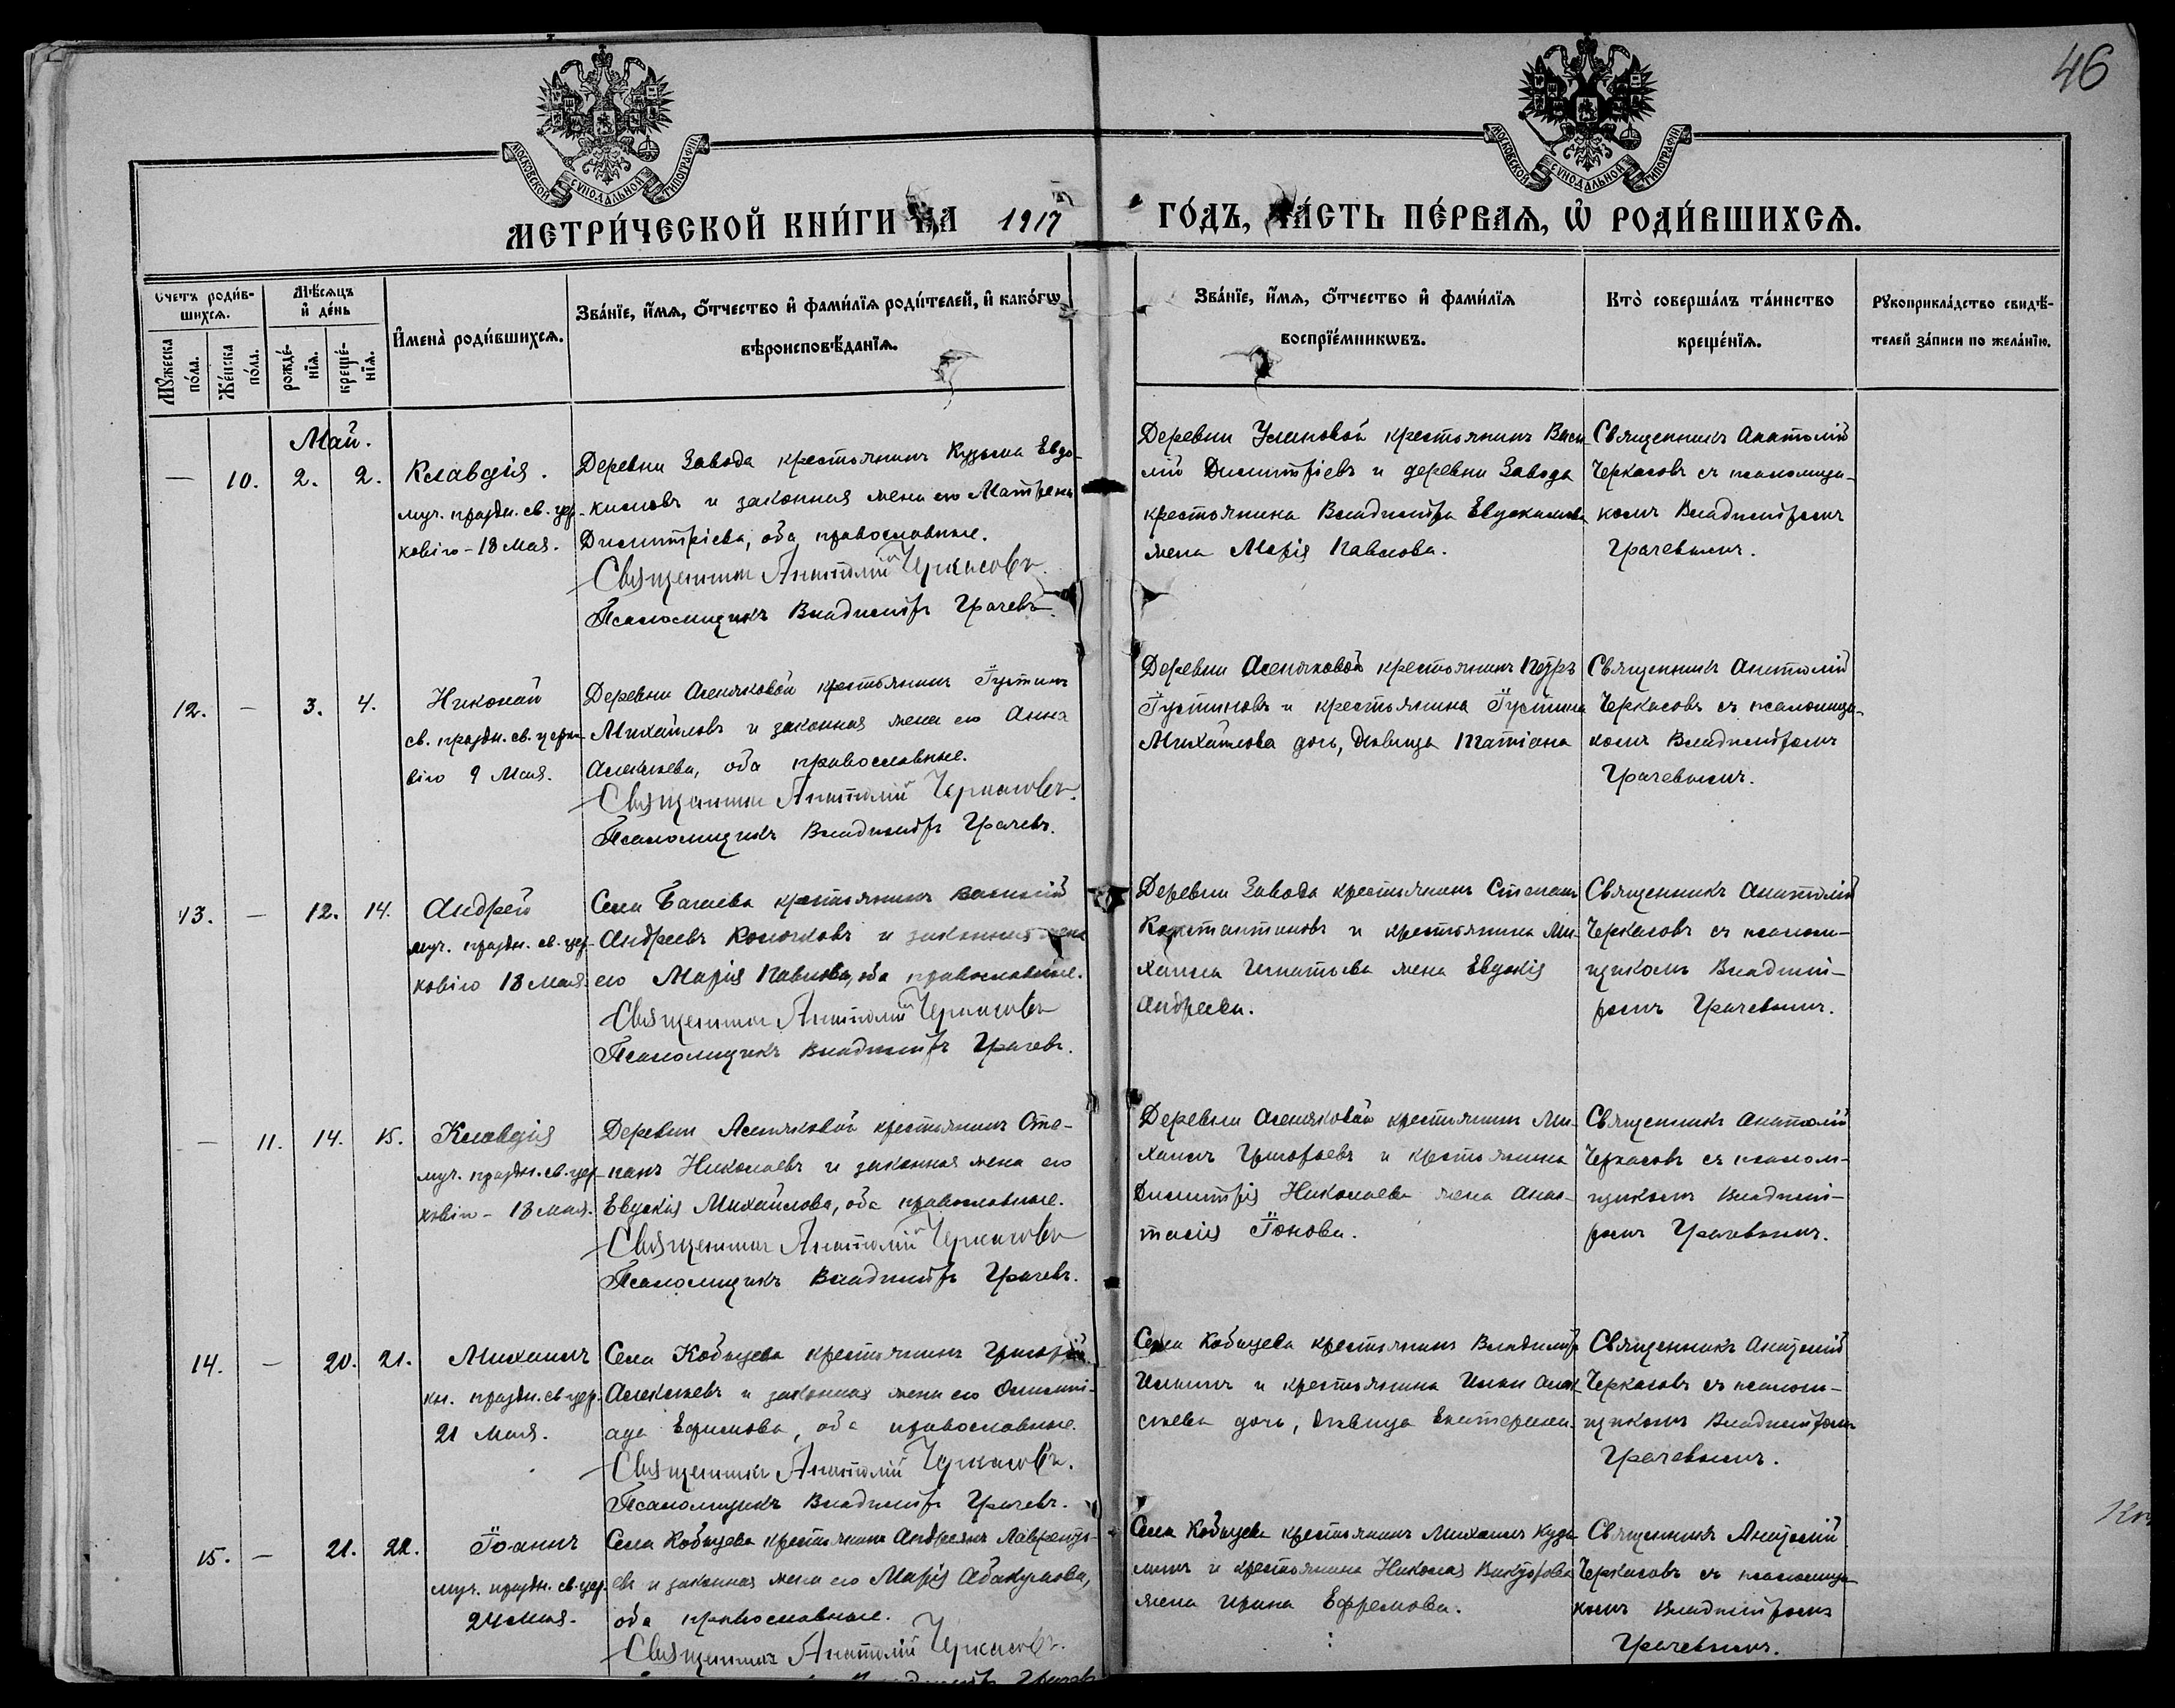 46
МОСКОВСКОЙ СѴНОДАЛЬНОЙ ТИПОГРАФІИ
МОСКОВСКОЙ СѴНОДАЛЬНОЙ ТИПОГРАФІИ
МЕТРИ́ЧЕСКОЙ КНИ́ГИ НА 1917 ГО́ДЪ, ЧА́СТЬ ПЕ́РВАѦ, Ѡ҆ РОДИ́ВШИХСѦ.
Счетъ роди́в-
шихсѧ.
Мꙋ́жеска
по́ла.
Же́нска
по́ла.
Мѣ́сѧцъ
и҆ де́нь
рожде́-
нїѧ.
креще́-
нїѧ.
И҆мена̀ роди́вшихсѧ.
Зва́нїе, и҆́мѧ, ѻ҆́тчество и҆ фами́лїѧ роди́телей, и҆ како́гѡ
вѣроисповѣ́данїѧ.
Зва́нїе, и҆́мѧ, ѻ҆́тчество и҆ фами́лїѧ
воспрїе́мникѡвъ.
Кто̀ соверша́лъ та́инство
креще́нїѧ.
Рꙋкоприкла́дство свидѣ́-
телей за́писи по жела́нїю.
Май.
— 10. 2. 2.
Клавдія.
муч. праздн. св. цер-
ковію - 18 Мая.
Деревни Завода крестьянинъ Кузьма Евдо-
кимовъ и законная жена его Матрена
Димитріева, оба православные.
Священникъ Анатолій Черкасовъ.
Псаломщикъ Владиміръ Грачевъ.
Деревни крестьянинъ Васи-
лій Димитріевъ и деревни Завода
крестьянина Владиміра Евдокимова
жена Марія Павлова.
Священникъ Анатолій
Черкасовъ съ псаломщи-
комъ Владиміромъ
Грачевымъ.
12. — 3. 4.
Николай
св. праздн. св. церко-
вію 9 Мая.
Деревни Асеньковой крестьянинъ Іустинъ
Михайловъ и законная жена его Анна
Алексѣева, оба православные.
Священникъ Анатолій Черкасовъ.
Псаломщикъ Владиміръ Грачевъ.
Деревни Асеньковой крестьянинъ Петръ
Іустиновъ и крестьянина Іустина
Михайлова дочь, дѣвица Татіана
Священникъ Анатолій
Черкасовъ съ псаломщи-
комъ Владиміромъ
Грачевымъ.
13. — 12. 14.
Андрей
муч. праздн. св. цер-
ковію 18 Мая.
Села крестьянинъ Василій
Андреевъ и законная жена
его Марія Павлова, оба православные.
Священникъ Анатолій Черкасовъ
Псаломщикъ Владиміръ Грачевъ.
Деревни Завода крестьянинъ Степанъ
Константиновъ и крестьянина Ми-
хаила Игнатьева жена Евдокія
Андреева.
Священникъ Анатолій
Черкасовъ съ псалом-
щикомъ Владимі-
ромъ Грачевымъ.
— 11. 14. 15.
Клавдія
муч. праздн. св. цер-
ковію - 18 мая.
Деревни Асеньковой крестьянинъ Сте-
панъ Николаевъ и законная жена его
Евдокія Михайлова, оба православные.
Священникъ Анатолій Черкасовъ
Псаломщикъ Владиміръ Грачевъ.
Деревни Асеньковой крестьянинъ Ми-
хаилъ Григорьевъ и крестьянина
Димитрія Николаева жена Анас-
тасія Іонова.
Священникъ Анатолій
Черкасовъ съ псалом-
щикомъ Владимі-
ромъ Грачевымъ.
14. — 20. 21.
Михаилъ
кн. праздн. св. цер.
21 Мая.
Села Кобыцева крестьянинъ Григорій
Алексѣевъ и законная жена его Олимпі-
ада Ефимова, оба православные.
Священникъ Анатолій Черкасовъ.
Псаломщикъ Владиміръ Грачевъ.
Села Кобыцева крестьянинъ Владиміръ
Ильинъ и крестьянина Ильи Алек-
сѣева дочь, дѣвица Екатерина.
Священникъ Анатолій
Черкасовъ съ псалом-
щикомъ Владиміромъ
Грачевымъ.
15. — 21. 22.
Іоаннъ
муч. праздн. св. цер.
24 мая.
Села Кобыцева крестьянинъ Андреянъ Лаврентье-
въ и законная жена его Марія Абакумова,
оба православные.
Священникъ Анатолій Черкасовъ.
Села Кобыцева крестьянинъ Михаилъ Кузь-
минъ и крестьянина Николая Викторова
жена Ирина Ефремова.
Священникъ Анатолій
Черкасовъ съ псаломщи-
комъ Владиміромъ
Грачевымъ.